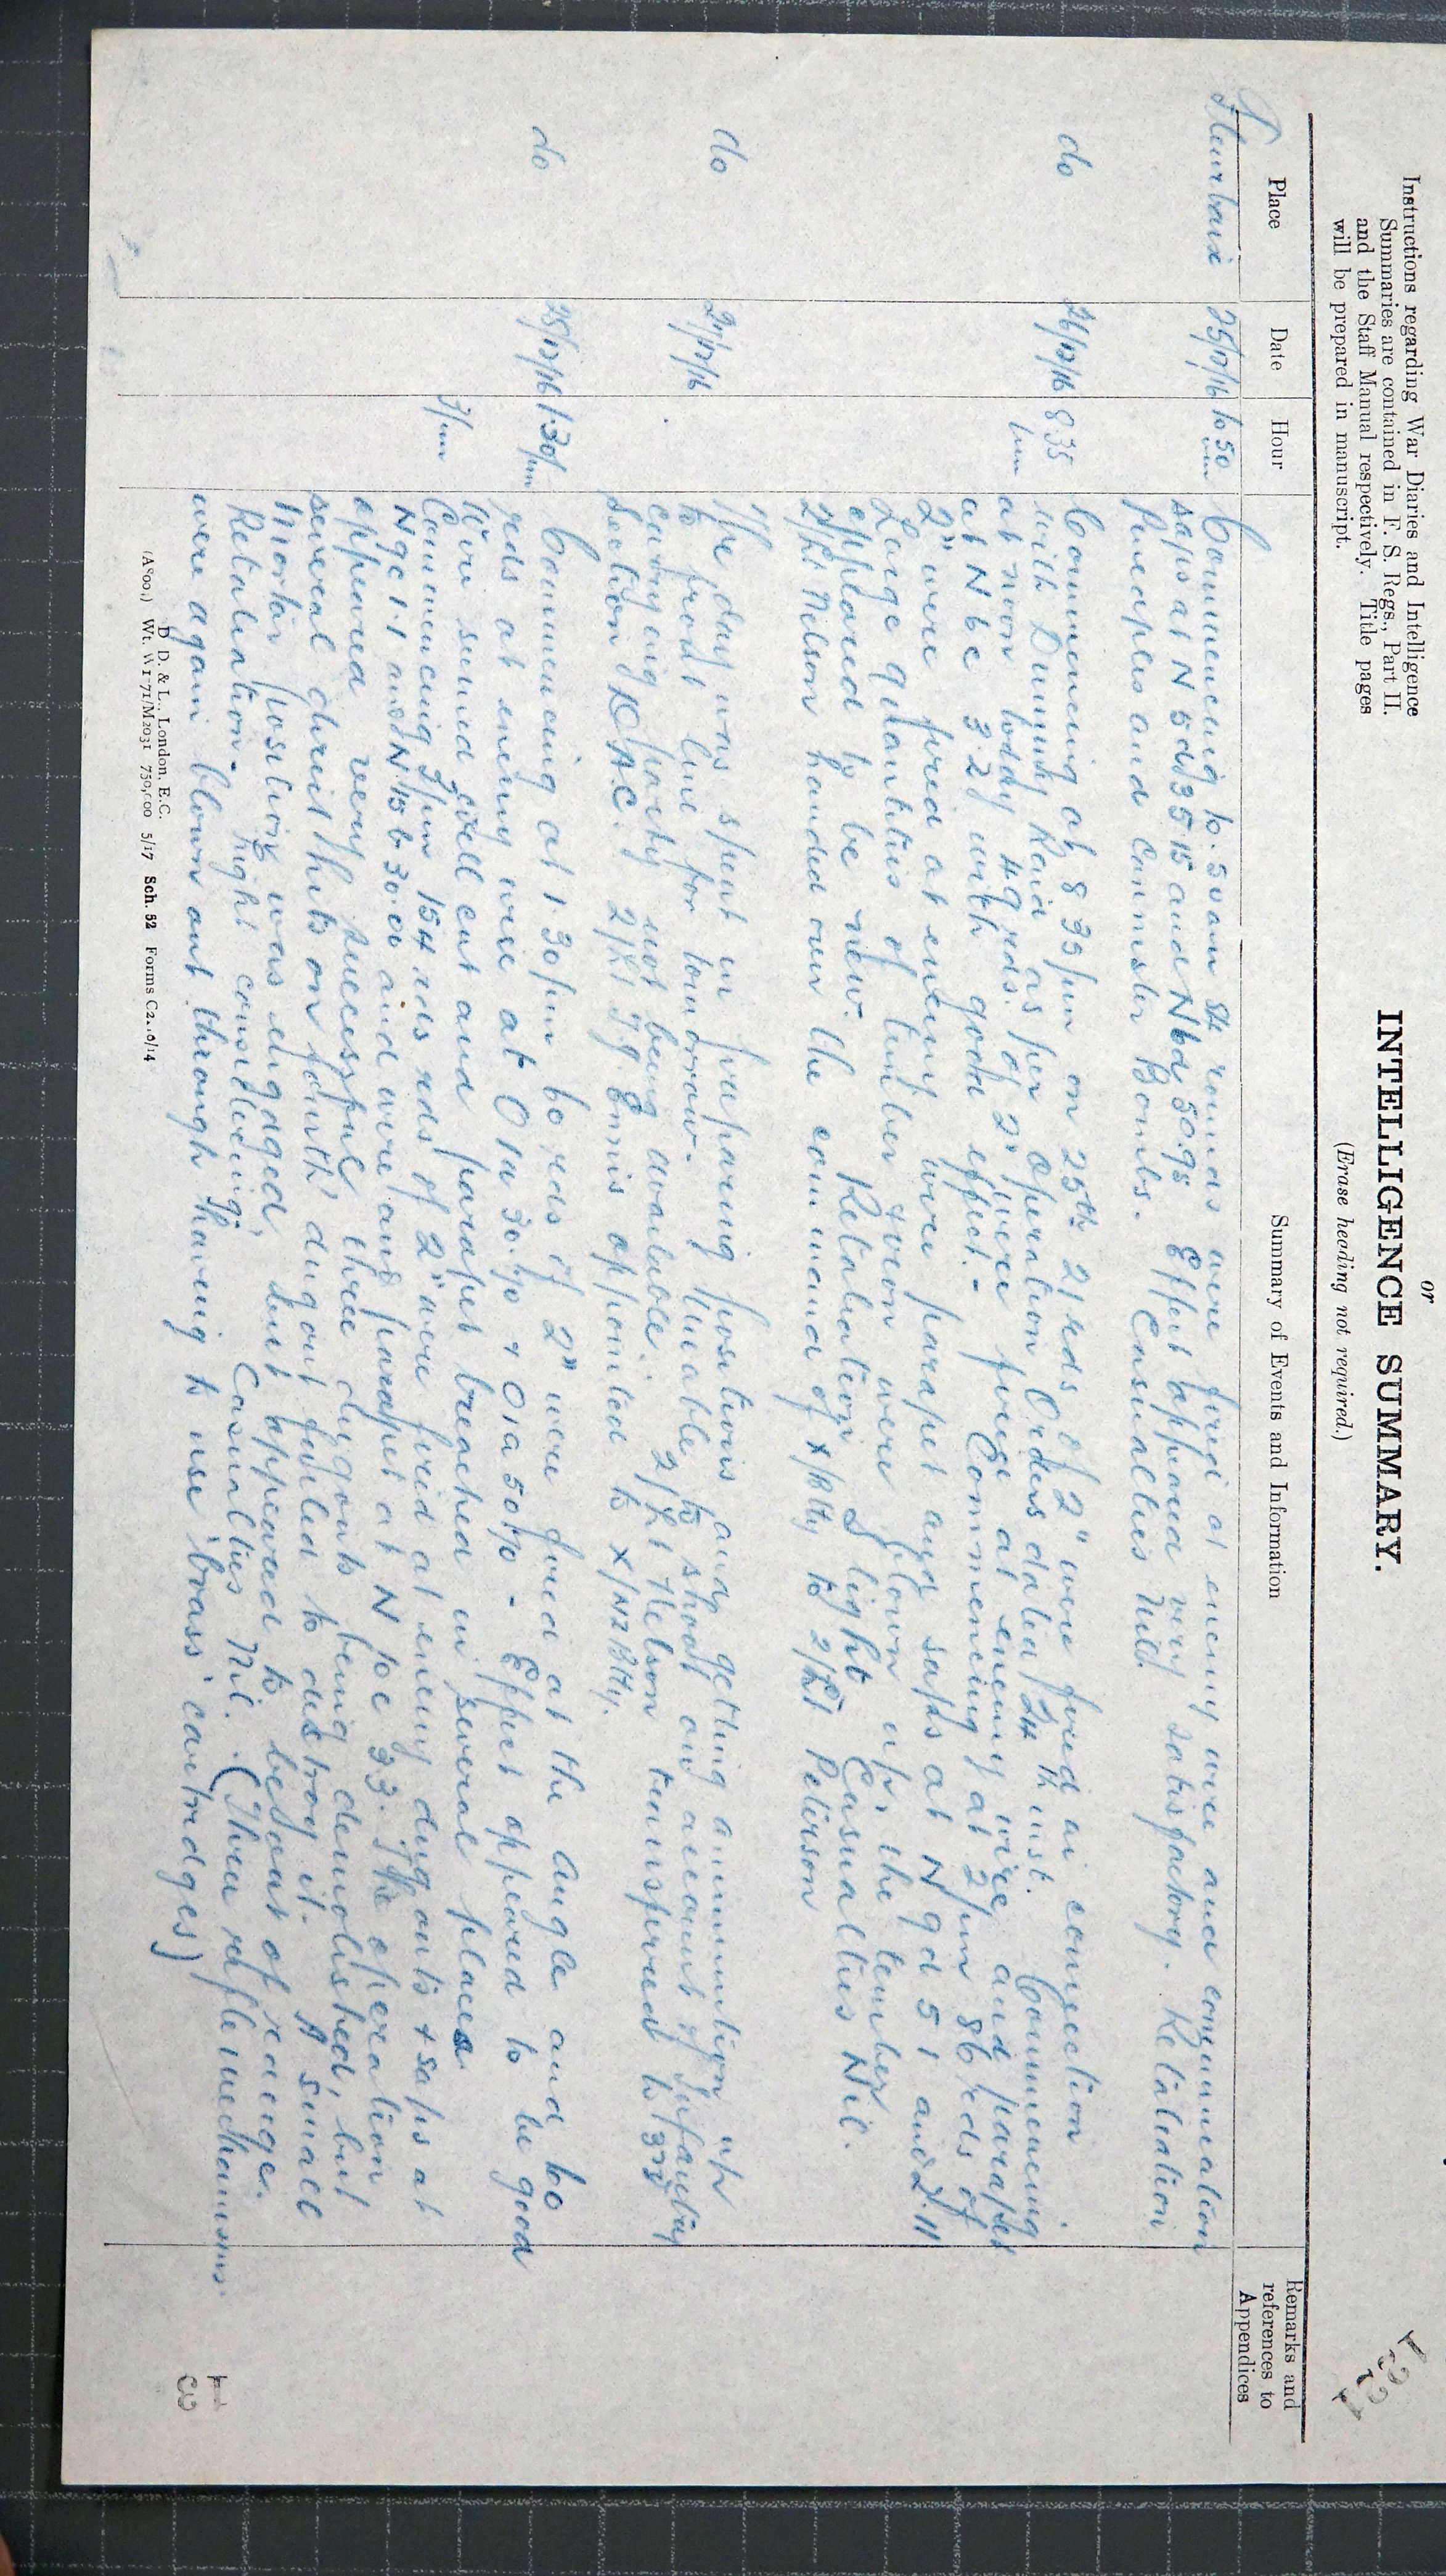 Instructions regarding War Diaries and Intelligence
Summaries are contained in F. S. Regs., Part II.
and the Staff Manual respectively. Title pages
will be prepared in manuscript.
or
INTELLIGENCE SUMMARY.
(Erase heading not required.)
Place Date Hour Summary of Events and Information Remarks and references to Appendices
Fleurbaix 25/12/16 10 50 am Commencing 10.50 am 84 rounds were fired at enemy wire and communication
saps at N 5 d 35 15 and N 6 d 50.95 Effect appeared very satisfactory. Retaliation
Pineapples and Cannister Bombs. Casualties Nil.
do 26/12/16 8.35 pm Commencing at 8 35 pm on 25th 21 rds of 2" were fired in conjection
with Dummy Raid as per Operation Orders dated 24th inst. Commencing
at noon today 49 rds. of 2" were fired at enemy wire and parapet
at N 6 c 3 2 with good effect. - Commencing at 2 pm 86 rds of
2" were fired at enemy wire parapet and saps at N 9 d 5 1 and 2.11
Large quantities of timber were blown up, the timber
appeared to be new. Retaliation Slight Casualties Nil.
2/Lt Nelson handed over the command of X/Btty to 2/Lt Peterson
do 27/12/16 The day was spent in preparing positions and getting ammunition up
to front line for tomorrow. Unable to shoot on account of Infantry
carrying party not being available. 2/Lt Nelson transferred to
Section DAC. 2/Lt Ennis appointed to X/NZ Btty.
do 28/12/16 1.30 pm Commencing at 1.30 pm 60 rds of 2" were fired at the Angle and 60
rds at enemy wire at Effect appeared to be good
Wire seemed well cut and parapet breached in several places
3 pm Commencing 3 pm 154 rds of 2" were fired at enemy dug outs + saps at
N 9 c 1.1 and N 15 b 30.00 and wire and parapet at N The operation
appeared very successful, three dugouts being demolished, but
several direct hits on fourth dugout failed to destroy it. A small
mortar position was engaged, but appeared to be out of range.
Retaliation light considering. Casualties Nil. (Three rifle mechanisms
were again blown out through having to use 'brass' cartridges)
D. D. & L., London, E.C.
Wt. W1771/M2031 750,000 5/17 Sch. 52 Forms
13